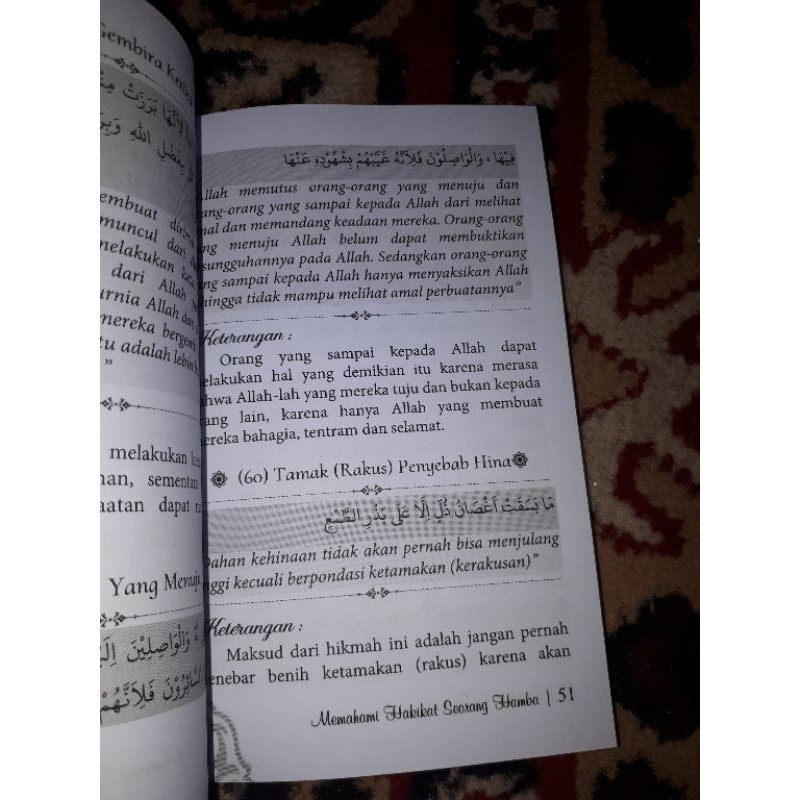 Gembira Ketika
لِأَنَّهَا بَرَزَتْ
بِفَضْلِ اللهِ
embuat
muncul dari
melakukan
dari Allah
urnia Allah
mereka
tu adalah lebih
”
melakukan
an, sementara
aatan dapat
Yang Menuju
وَالْوَاصِلِيْنَ
السَّائِرُوْنَ فَلِأَنَّهُمْ
فِيْهَا ، وَالْوَاصِلُوْنَ فَلِأَنَّهُ غَيَّبَهُمْ بِشُهُوْدِهِ عَنْهَا
Allah memutus orang-orang yang menuju dan
ang-orang yang sampai kepada Allah dari melihat
mal dan memandang keadaan mereka. Orang-orang
ng menuju Allah belum dapat membuktikan
sungguhannya pada Allah. Sedangkan orang-orang
ng sampai kepada Allah hanya menyaksikan Allah
hingga tidak mampu melihat amal perbuatannya”
Keterangan :
Orang yang sampai kepada Allah dapat
elakukan hal yang demikian itu karena merasa
ahwa Allah-lah yang mereka tuju dan bukan kepada
rang lain, karena hanya Allah yang membuat
ereka bahagia, tentram dan selamat.
(60) Tamak (Rakus) Penyebab Hina
مَا بَسَقَتْ أَغْصَانُ ذُلٍّ إِلَّا عَلَى بَذْرِ الطَّمَعِ
Dahan kehinaan tidak akan pernah bisa menjulang
nggi kecuali berpondasi ketamakan (kerakusan)”
Keterangan :
Maksud dari hikmah ini adalah jangan pernah
enebar benih ketamakan (rakus) karena akan
Memahami Hakikat Seorang Hamba | 51